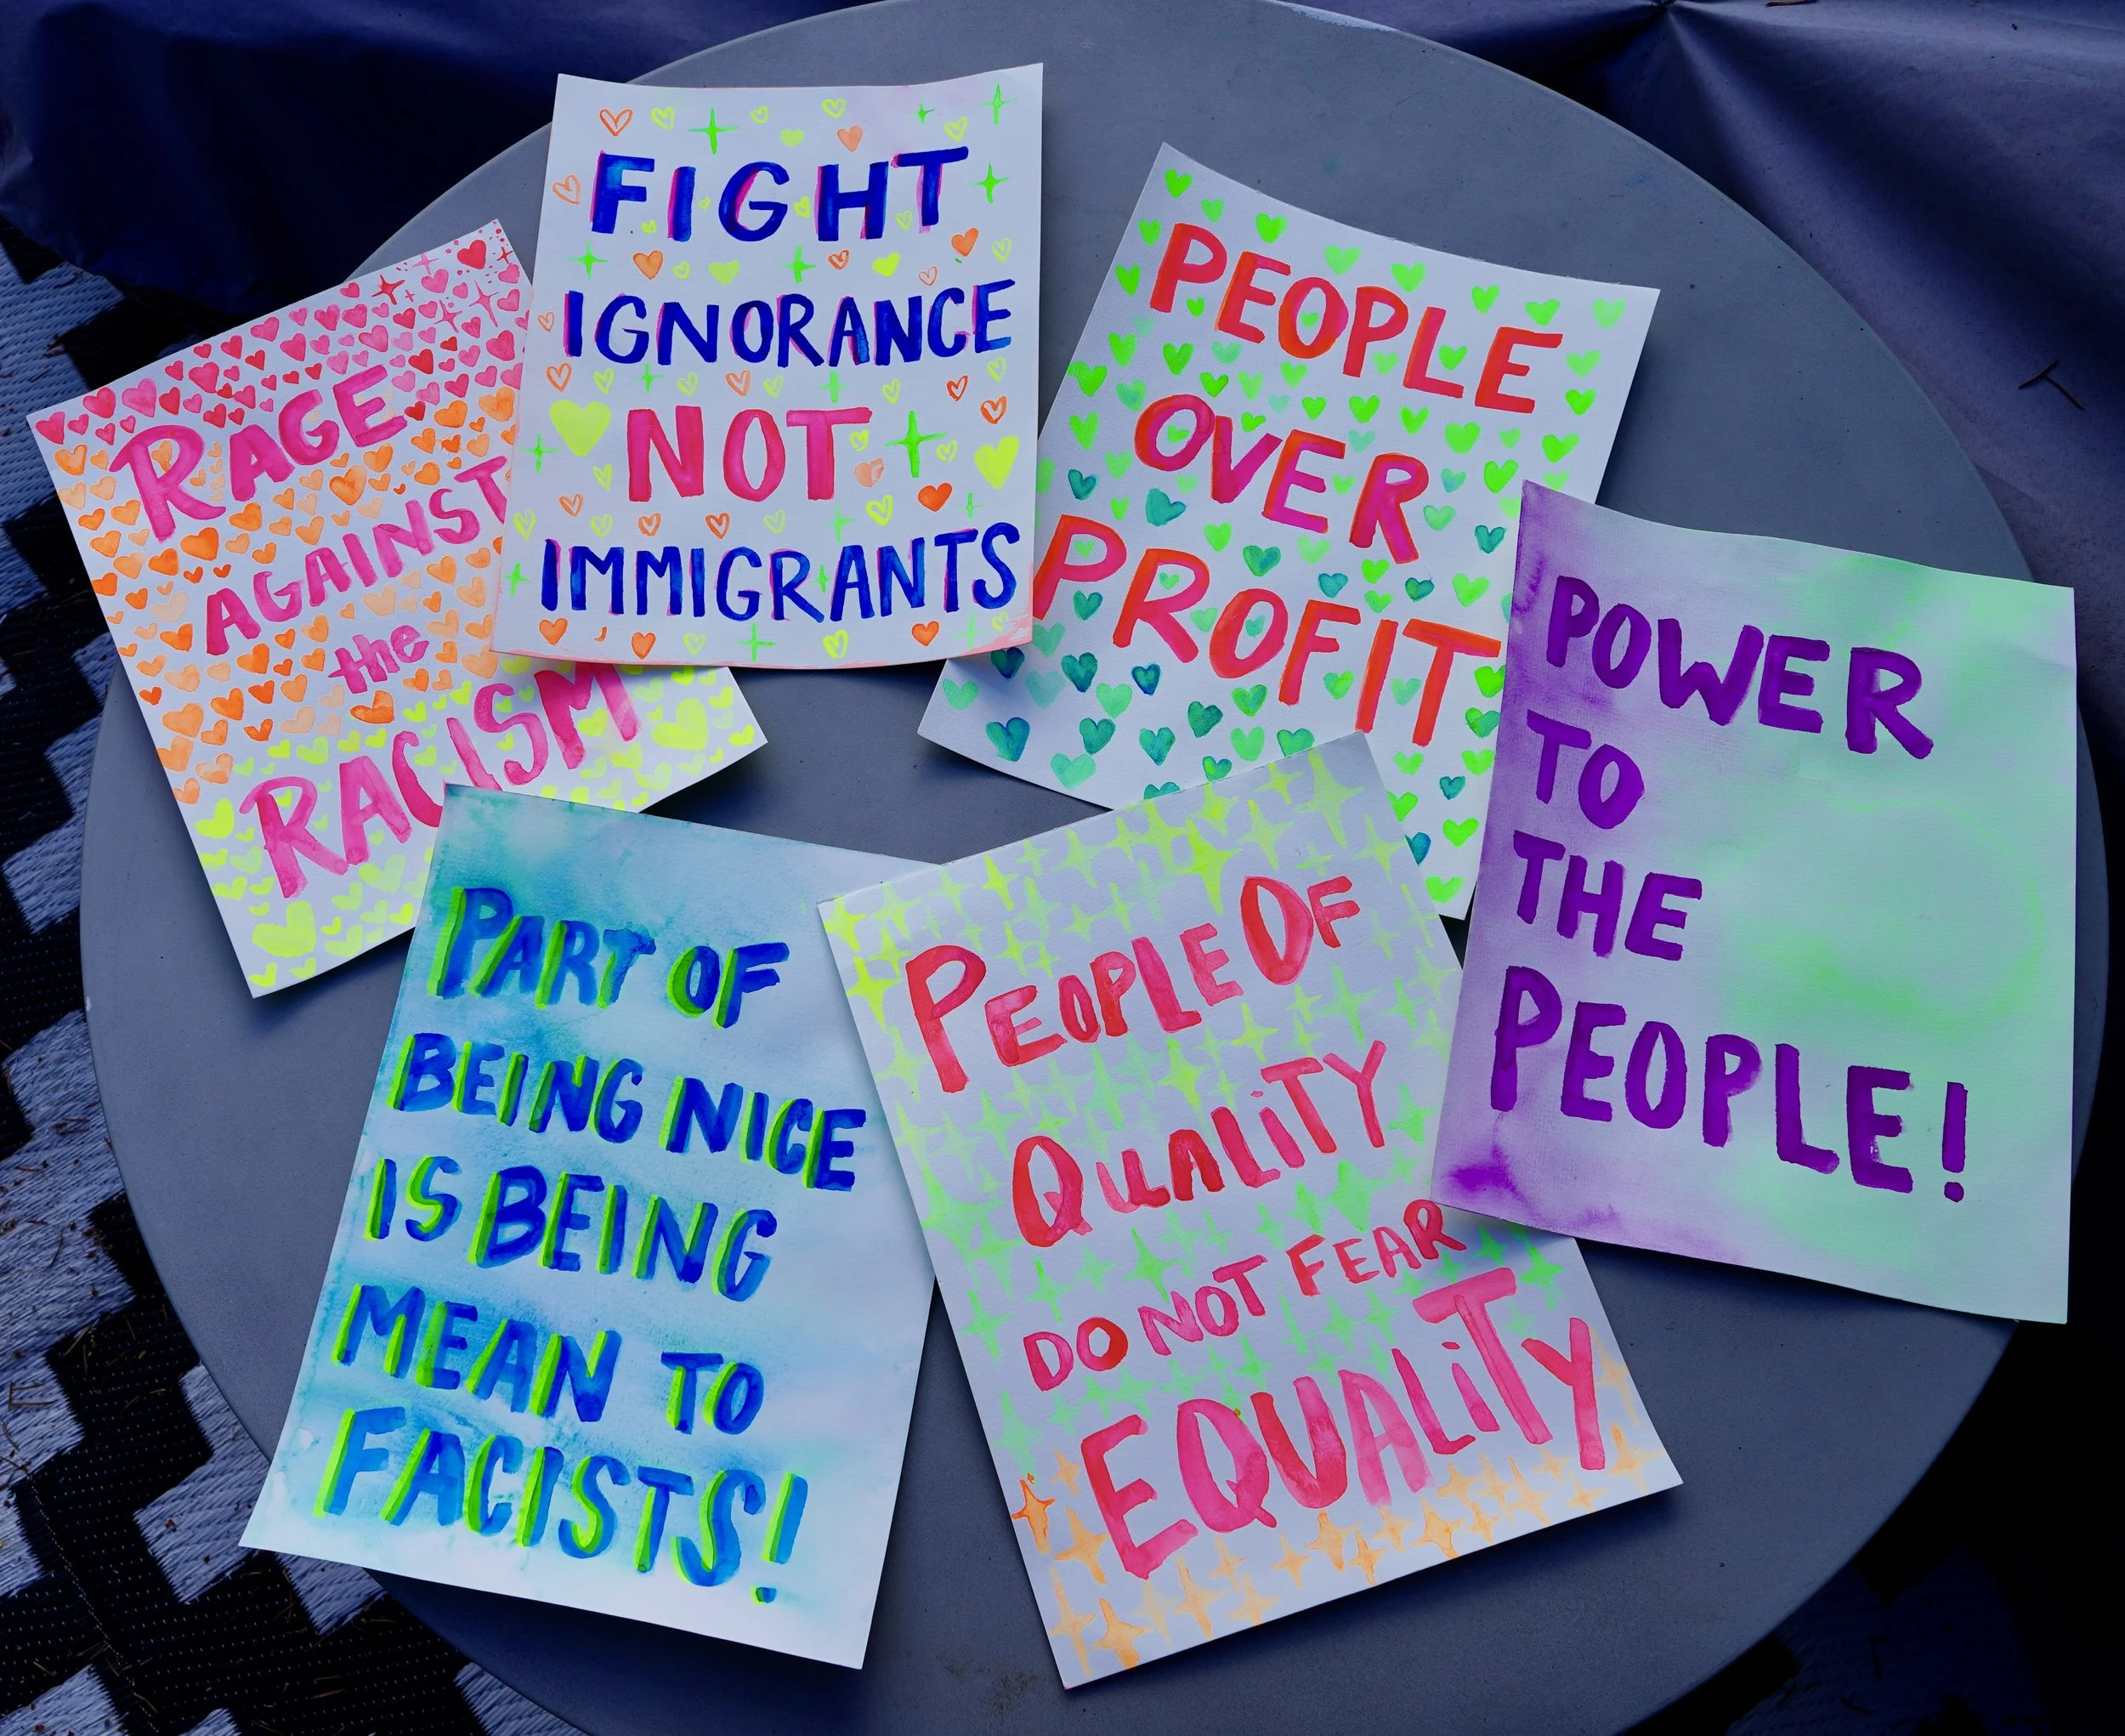 RAGE
AGAINST
the
RACISM
FIGHT
IGNORANCE
NOT
IMMIGRANTS
PEOPLE
OVER
PROFIT
POWER
TO
THE
PEOPLE!
PART OF
BEING NICE
IS BEING
MEAN TO
FACISTS!
PEOPLE OF
QUALiTY
DO NOT FEAR
EQUALiTY